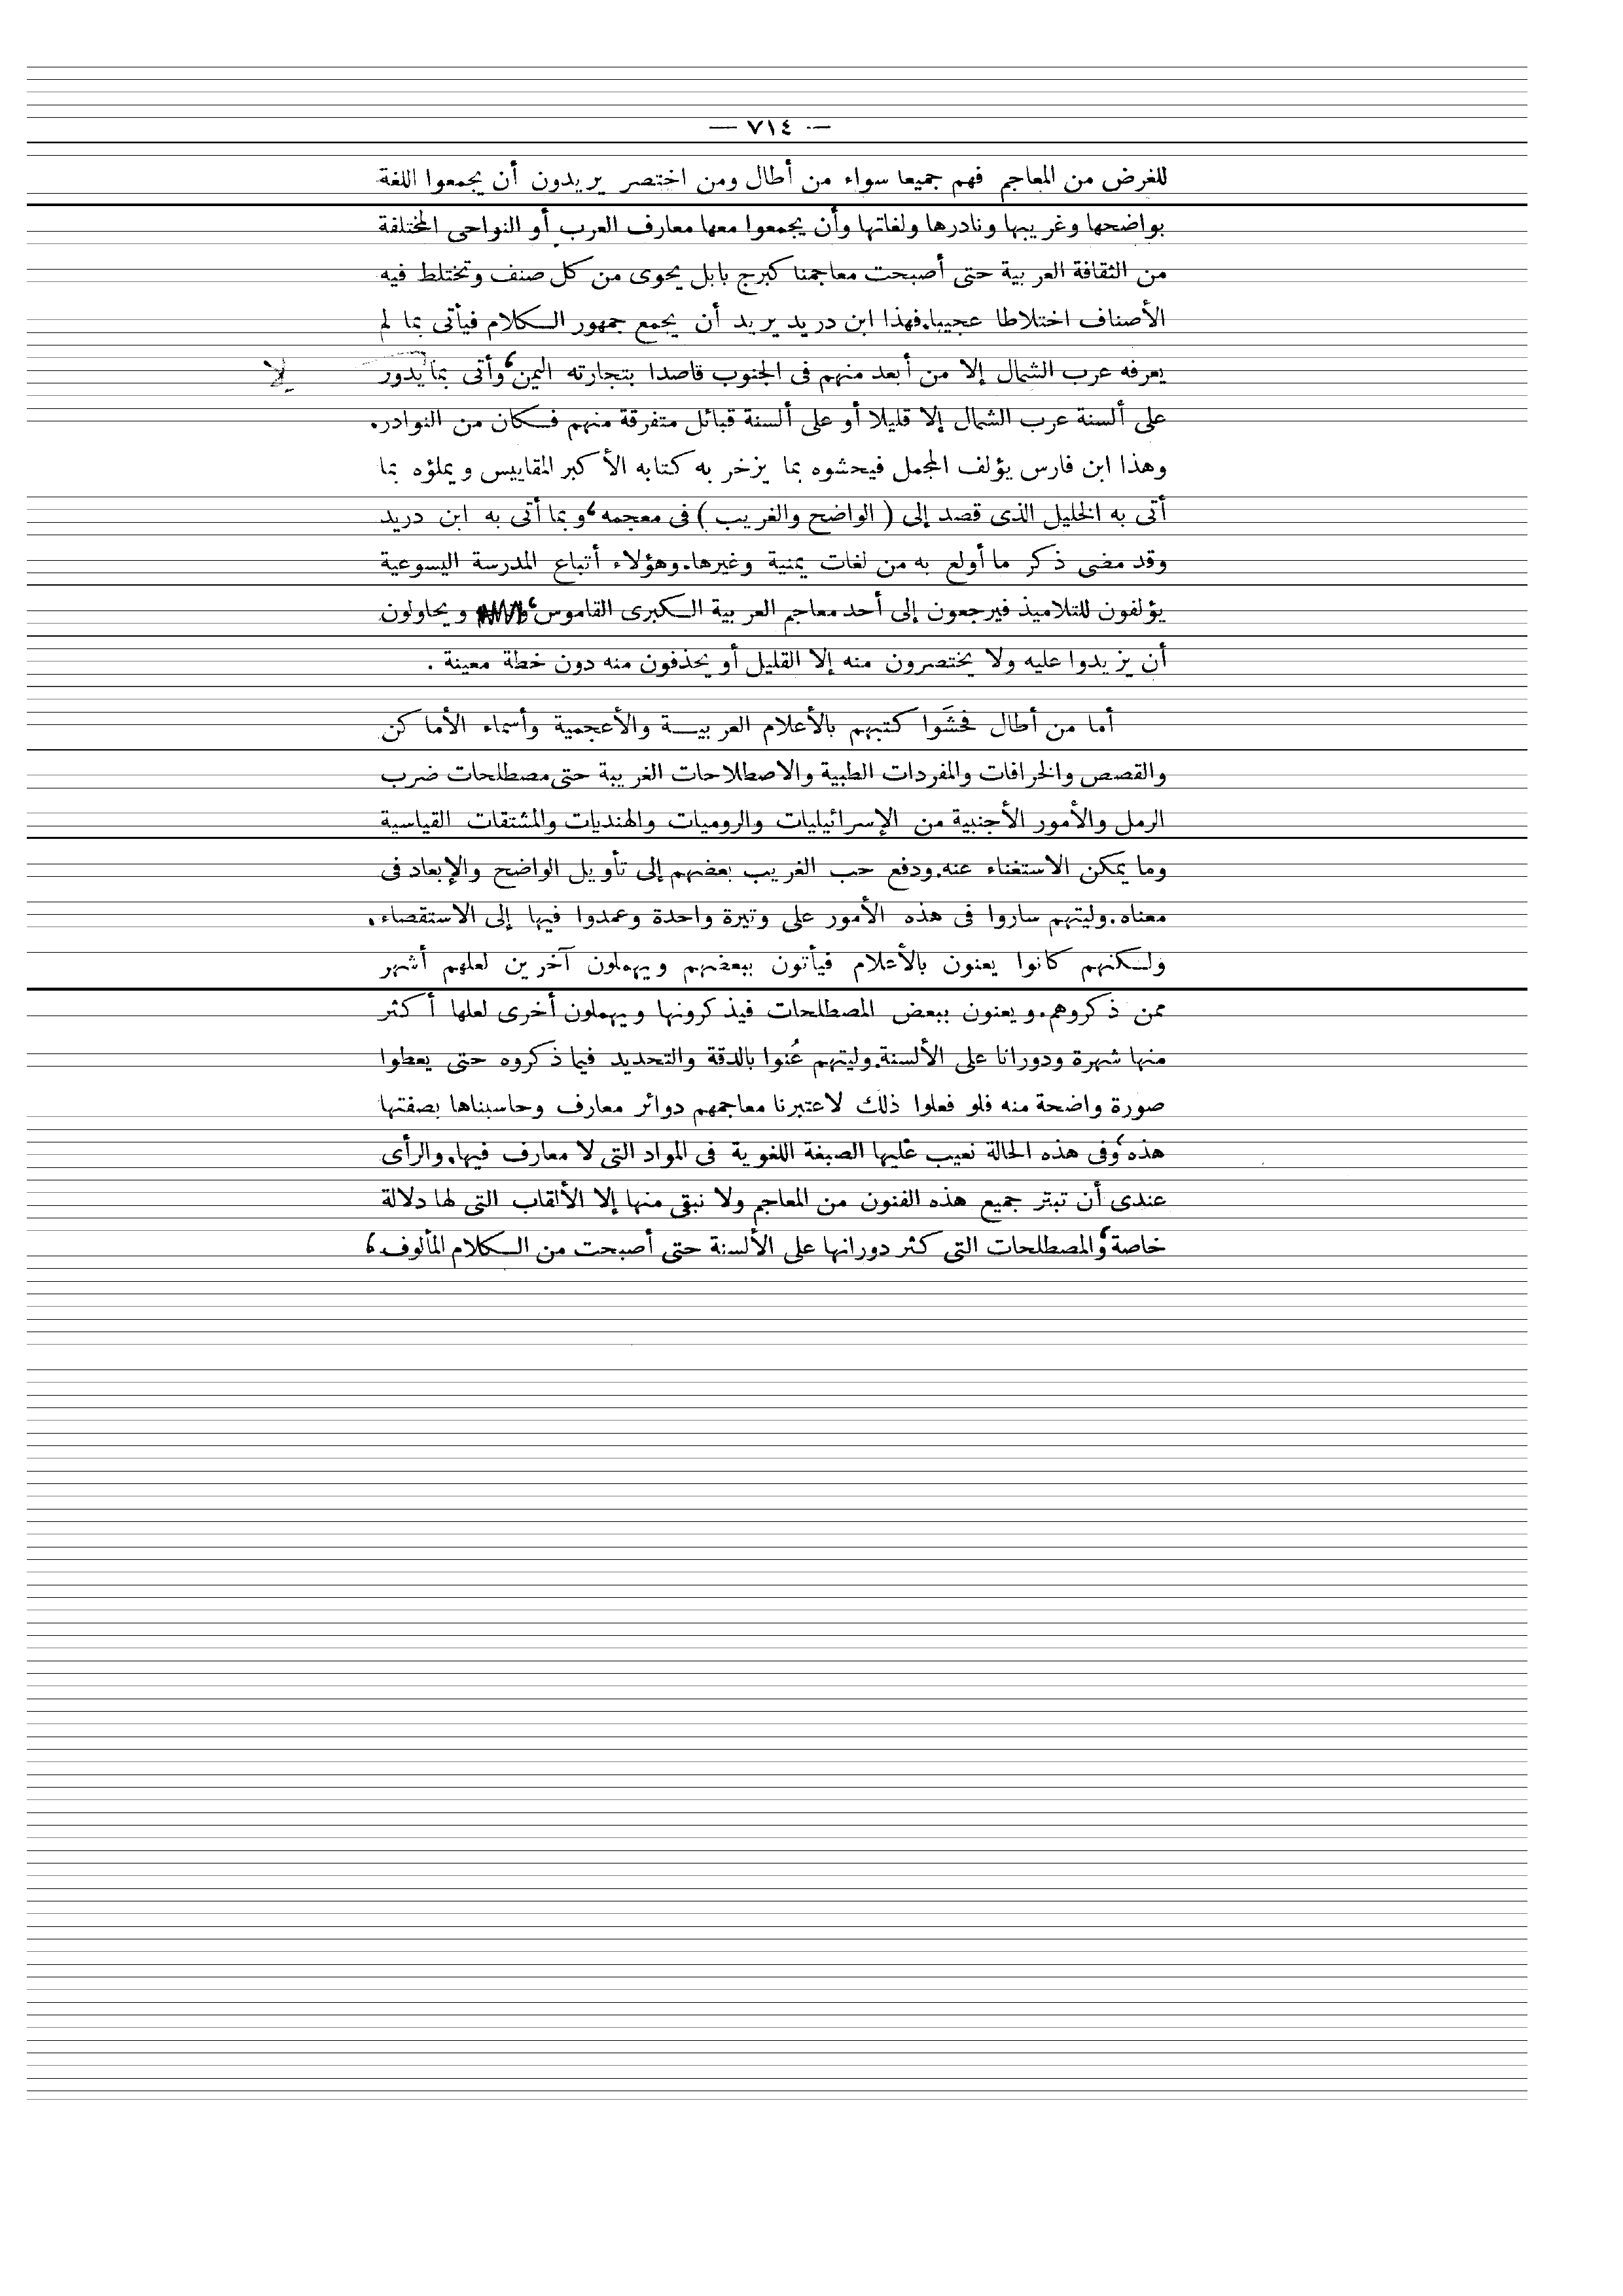 — ٧١٤ —
للغرض من المعاجم فهم جميعا سواء من أطال ومن اختصر يريدون أن يجمعوا اللغة
بواضحها وغريبها ونادرها ولغاتها وأن يجمعوا معها معارف العرب أو النواحى المختلفة
من الثقافة العربية حتى أصبحت معاجمنا كبرج بابل يحوى من كل صنف وتختلط فيه
الأصناف اختلاطا عجيبا. فهذا ابن دريد يريد أن يجمع جمهور الكلام فيأتى بما لم
يعرفه عرب الشمال إلا من أبعد منهم فى الجنوب قاصدا بتجارته اليمن، وأتى بما يدور
لا
على ألسنة عرب الشمال إلا قليلا أو على ألسنة قبائل متفرقة منهم فكان من النوادر.
وهذا ابن فارس يؤلف المجمل فيحشوه بما يزخر به كتابه الأكبر المقاييس ويملؤه بما
أتى به الخليل الذى قصد إلى ( الواضح والغريب ) فى معجمه، وبما أتى به ابن دريد
وقد مضى ذكر ما أولع به من لغات يمنية وغيرها. وهؤلاء أتباع المدرسة اليسوعية
يؤلفون للتلاميذ فيرجعون إلى أحد معاجم العربية الكبرى القاموس، ويحاولون
أن يزيدوا عليه ولا يختصرون منه إلا القليل أو يحذفون منه دون خطة معينة .
أما من أطال فحشَوا كتبهم بالأعلام العربيـة والأعجمية وأسماء الأماكن
والقصص والخرافات والمفردات الطبية والاصطلاحات الغريبة حتى مصطلحات ضرب
الرمل والأمور الأجنبية من الإسرائيليات والروميات والهنديات والمشتقات القياسية
وما يمكن الاستغناء عنه. ودفع حب الغريب بعضهم إلى تأويل الواضح والإبعاد فى
معناه. وليتهم ساروا فى هذه الأمور على وتيرة واحدة وعمدوا فيها إلى الاستقصاء.
ولكنهم كانوا يعنون بالأعلام فيأتون ببعضهم ويهملون آخرين لعلهم أشهر
ممن ذكروهم. ويعنون ببعض المصطلحات فيذكرونها ويهملون أخرى لعلها أكثر
منها شهرة ودورانا على الألسنة. وليتهم عُنوا بالدقة والتحديد فيما ذكروه حتى يعطوا
صورة واضحة منه فلو فعلوا ذلك لاعتبرنا معاجمهم دوائر معارف وحاسبناها بصفتها
هذه، وفى هذه الحالة نعيب عليها الصبغة اللغوية فى المواد التى لا معارف فيها. والرأى
عندى أن تبتر جميع هذه الفنون من المعاجم ولا نبقى منها إلا الألقاب التى لها دلالة
خاصة، والمصطلحات التى كثر دورانها على الألسنة حتى أصبحت من الكلام المألوف،